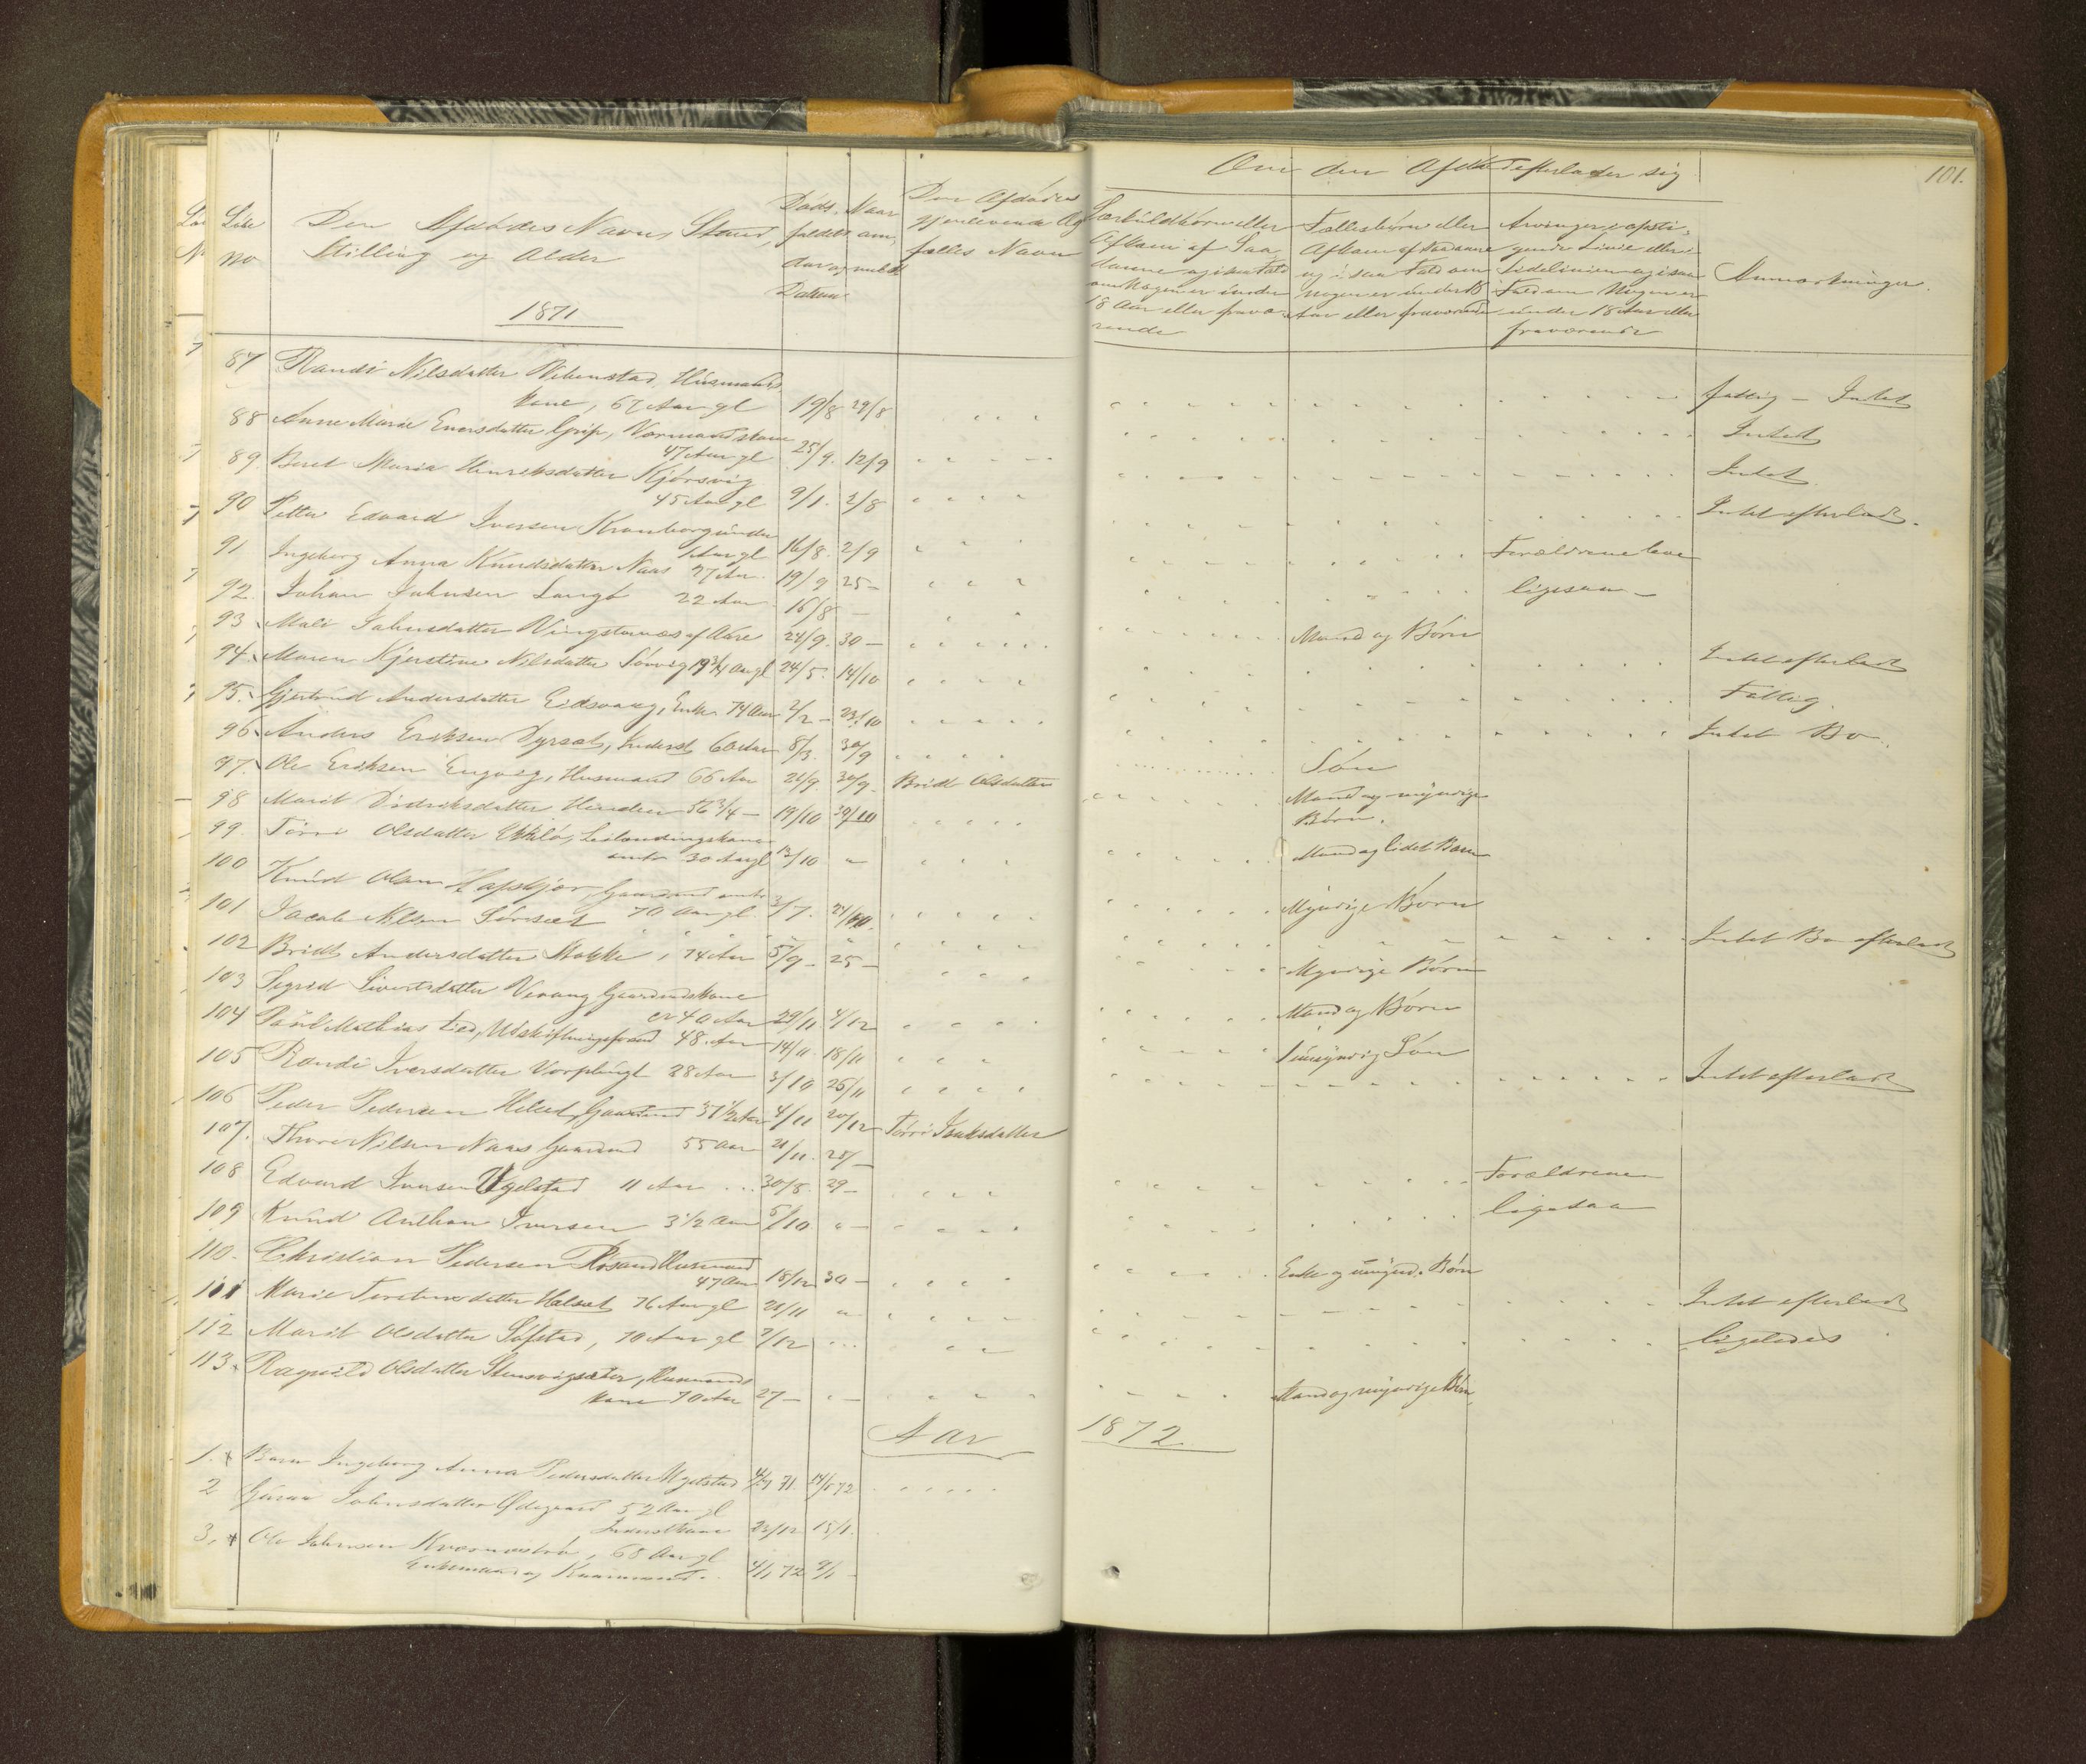 101.
Om den Afdøde efterlader sig
Løbe
No
Den Afdødes Navn, Stand,
Stilling og Alder
1871
Døds-
faldets
Aar og
Datum
Naar
an-
meldt
Den Afdødes
gjenlevende Æg-
fælles Navn
Særkuldbørn eller
Afkom af Saa-
danne og i saa Fald
om Nogen er under
18 Aar eller fravæ-
rende
Fællesbørn eller
Afkom af saadanne
og i saa Fald om
nogen er under 18
Aar eller fraværende
Arvinger i opsti-
gende Linie eller i
Sidelinien og i saa
Fald om Nogen er
under 18 Aar eller
fraværende
Anmærkninger.
87 Randi Nilsdatter Vebenstad, Husmands
kone, 67 Aar gl 19/8 29/8 fattig - Intet
88 Anne Marie Enersdatter Grip, Normandskone
47 Aar gl 25/9. 12/9 Intet
89. Beret Maria Henriksdatter Kjørsvig
45 Aar gl 9/1. 2/8 Intet
90 Petter Edvard Iversen Kranborgunder
1 Aar gl 16/8. 2/9 Intet efterladt.
91 Ingeborg Anna Knudsdatter Naas 27 Aar. 19/9 25- Forældrene leve
92. Johan Johnsen Langø 22 Aar 16/8 - ligesaa -
93 Mali Johnsdatter Vingsternæs af Aare 24/9. 30 - Mand og Børn
94. Maren Kjerstine Nilsdatter Sørvig 19 3/4 Aar gl 24/5. 14/10 Intet efterladt
95. Gjertrud Andersdatter Eidsvaag, Enke 74 Aar 2/2 - 23/10 Fattig.
96 Anders Eriksen Dyrsæt, Inderst 60 Aar 8/3. 30/9 Intet Bo.
97. Ole Eriksen Engvig, Husmand 66 Aar 26/9. 30/9. Bridt Olsdatter Søn
98 Marit Didriksdatter Henden 56 3/4 - 19/10 30/10 Mand og myndige
Børn.
99. Førri Olsdatter Ekkilø, Leilændingskone
omtr 30 Aar gl 13/10 " Mand og lidet Barn
100 Knud Olsen Hapskjær, Gaardmd omtr
70 Aar gl. 3/7. 24/10. Myndige Børn
101 Jacob Nilsen Sørsæt " " " " Intet Bo efterladt
102 Bridt Andersdatter Stokke, 74 Aar 5/9 - 25 - Myndige Børn
103 Sigrid Sivertsdatter Vevang Gaardmdskone
er 40 Aar 29/11 4/12 Mand og Børn
104 Paul Mathias Lied, Udskiftningsformd 48 Aar 14/11. 18/11 1 umyndig Søn
105 Randi Iversdatter Vorpbugt 28 Aar 3/10 26/11 Intet efterladt
106 Peder Pedersen Helset, Gaardmd 37 1/2 Aar 4/11 20/12 Førri Isaksdatter
107. Thore Nilsen Naas Gaardmd 55 Aar 21/11. 25/ -
108 Edvard Iversen Ugelstad 11 Aar ... 30/8. 29 - Forældrene
109 Knud Anthon Iversen 3 1/2 Aar 5/10 " - ligesaa
110. Christian Pedersen Røsand Husmand
47 Aar 18/12 30 - Enke og umynd. Børn
111 Marie Torstensdatter Halset 76 Aar gl 28/11 " Intet efterladt
112 Marit Olsdatter Søfstad, 70 Aar gl 7/12 ... ligeledes
113. Ragnild Olsdatter Stensvigsæter, Husmands
kone 70 Aar 27 - " - Mand og myndige Børn
Aar 1872
1. Barn Ingeborg Anna Pedersdatter Ugelstad 71. 14/1 72
2 Guraa Johnsdatter Ødegaard 52 Aar gl
Inderstkone 23/12 15/1.
3. Ole Johnsen Kværnestrø, 68 Aar gl
Enkemand og Kaarmand. 4/1 72 9/1 -